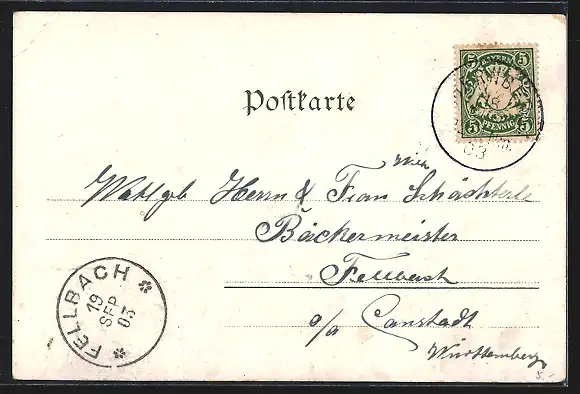 5 BAYERN 5
5 PFENNIG 5
03
Postkarte
Wohlgb Herrn & Frau Schächterle
Bäckermeister
Fellbach
o/a Canstadt
Württemberg
FELLBACH
19
SEP
03